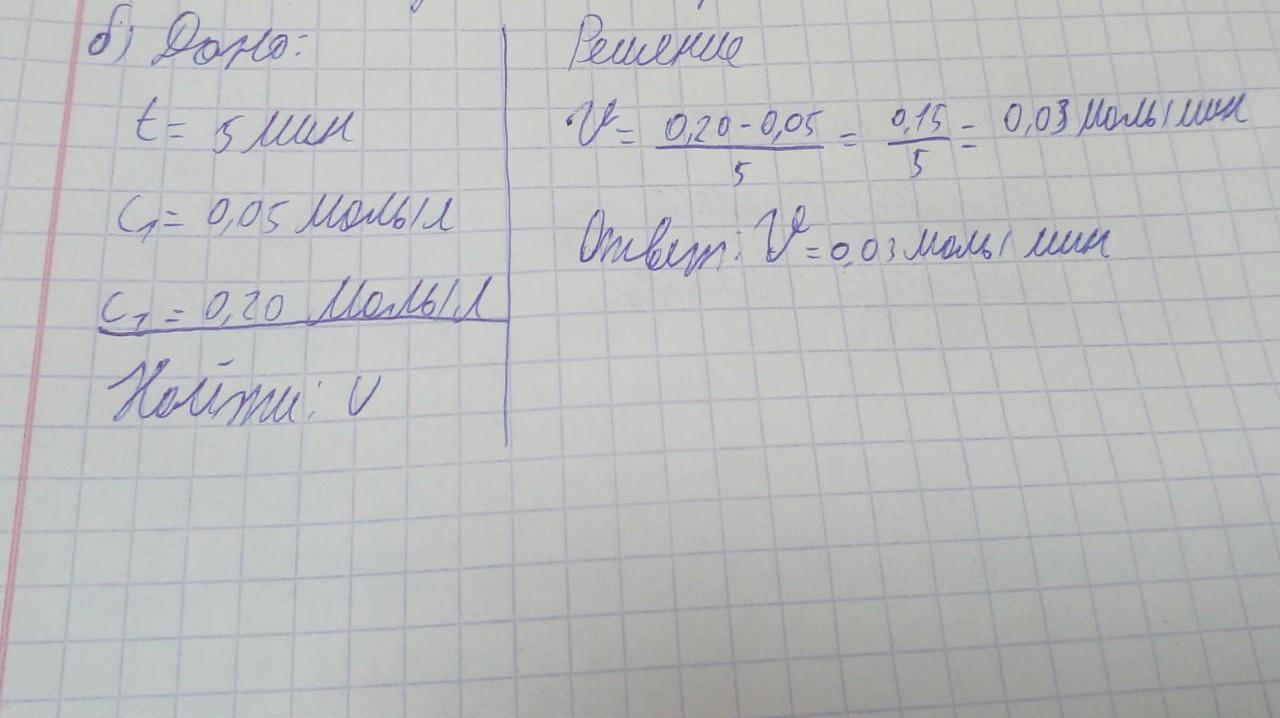 б) Дано:
t = 5 мин
C₁ = 0,05 моль/л
C₂ = 0,20 моль/л
Найти: υ
Решение
υ = (0,20 - 0,05)/5 = 0,15/5 = 0,03 моль/мин
Ответ: υ = 0,03 моль/мин